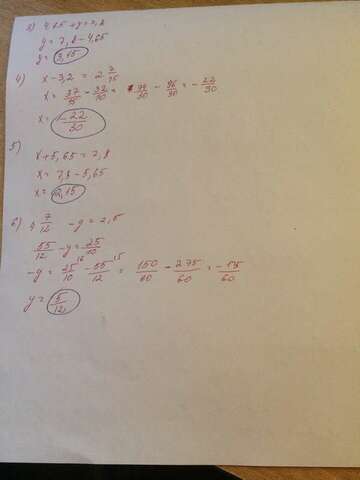 3) 4,65+y=7,8
y=7,8-4,65
y=3,15
4) x-3,2=2 7/15
x=37/15-32/10=74/30-96/30=-22/30
x=-22/30
5)
x+5,65=7,8
x=7,8-5,65
x=2,15
6) 4 7/12-y=2,5
55/12-y=25/10
-y=25/10-55/12=150/60-275/60=-
y=5/12